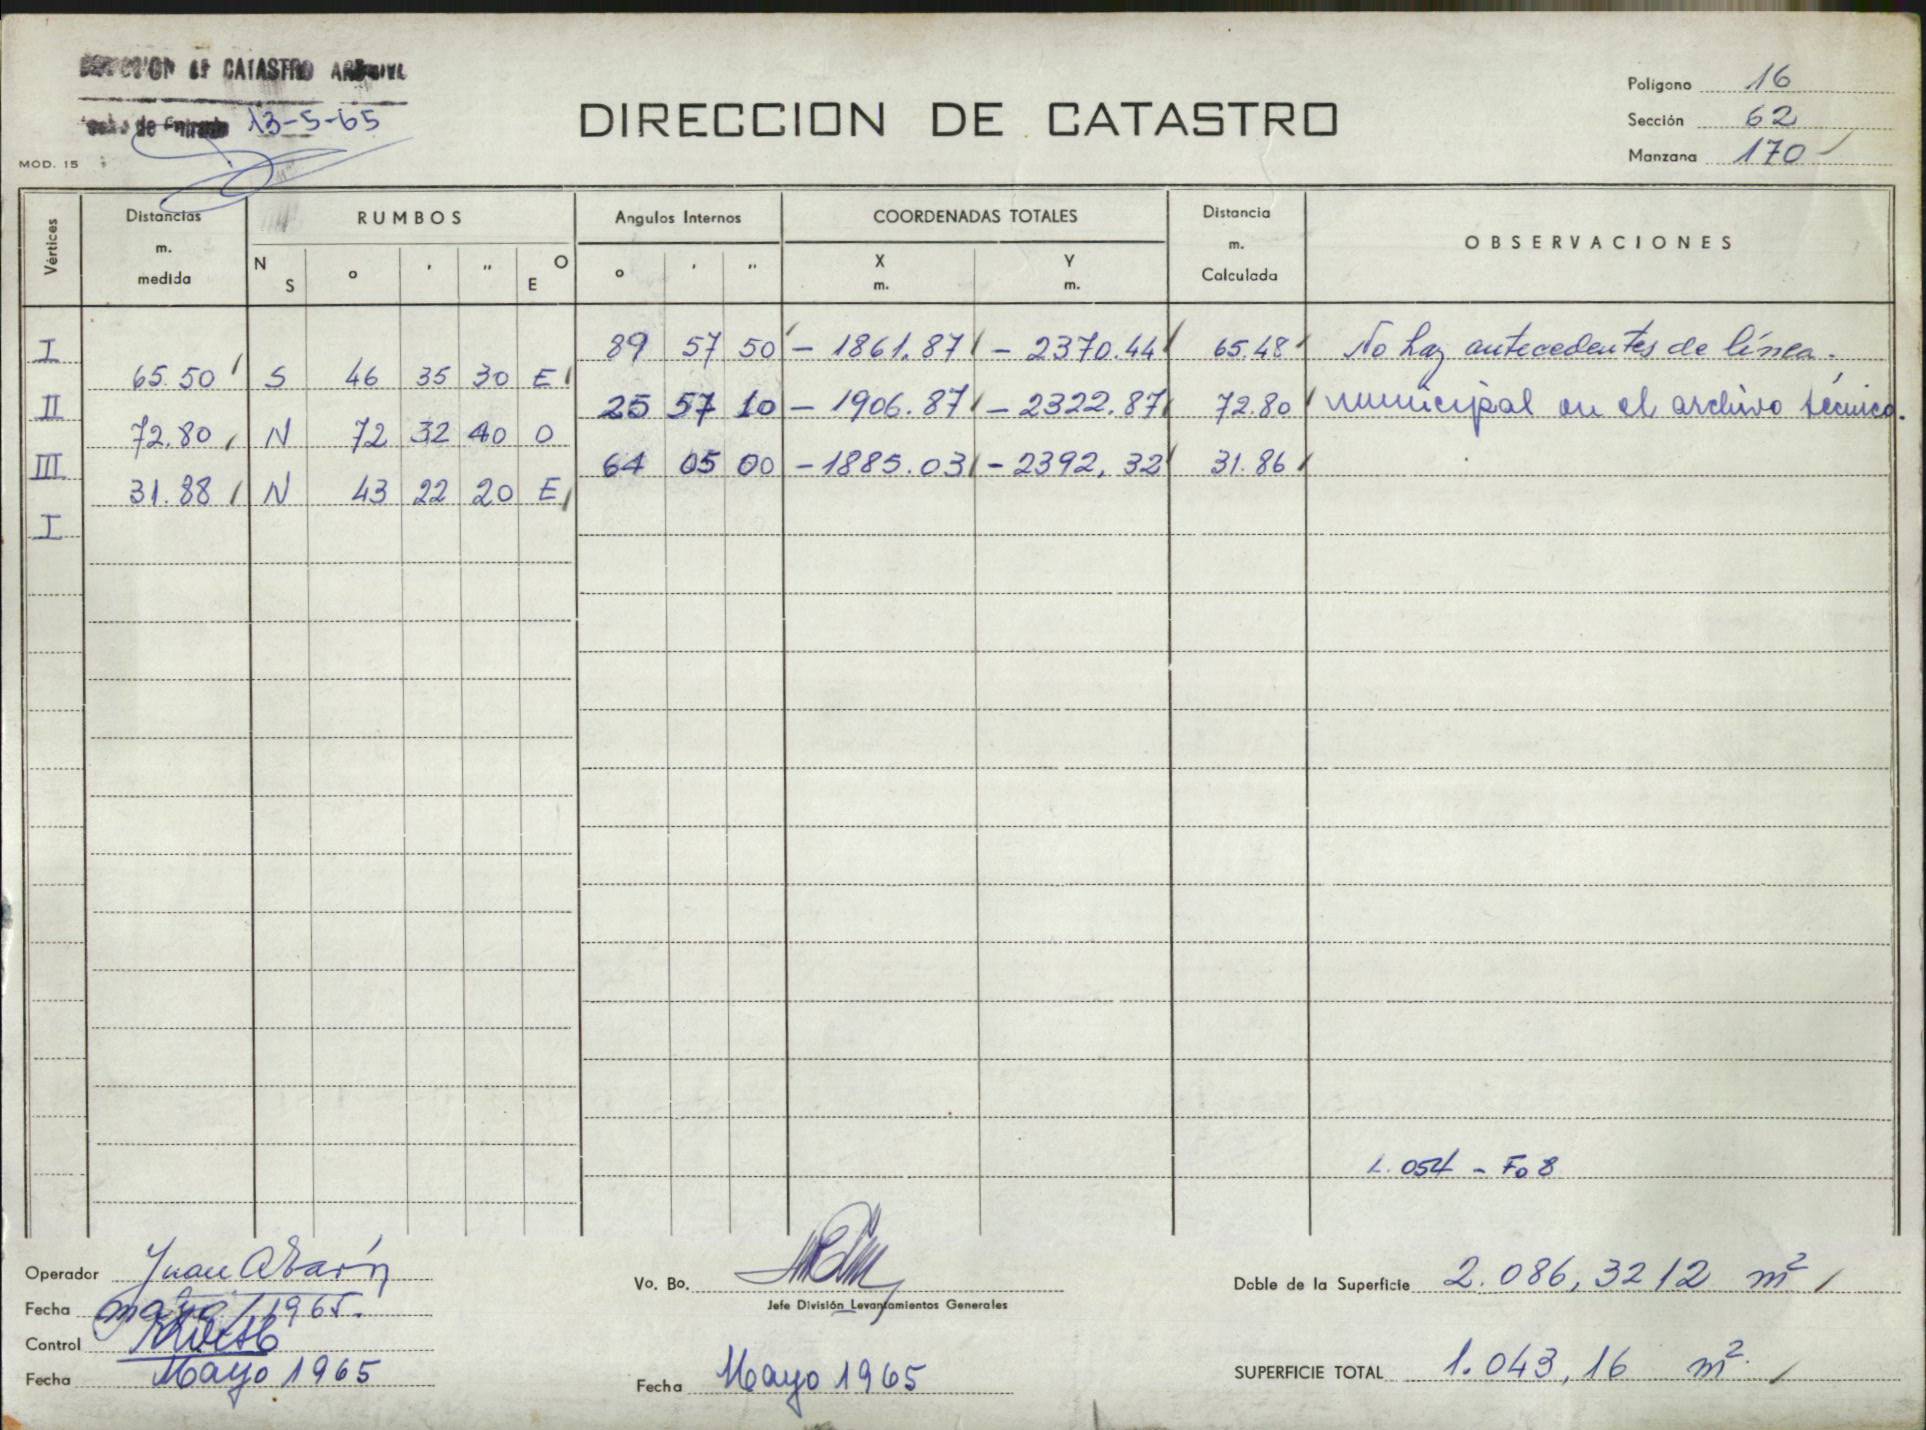 DIRECCION DE CATASTRO ARCHIVO
Fecha de Entrada 13-5-65
MOD. 15
DIRECCION DE CATASTRO
Polígono 16
Sección 62
Manzana 170
Vértices
Distancias m. medida
RUMBOS
N S ° ' " O E
Angulos Internos
° ' "
COORDENADAS TOTALES
X m. Y m.
Distancia m. Calculada
OBSERVACIONES
I 89 57 50 - 1861.87 - 2370.44 65.48 No hay antecedentes de línea
65.50 S 46 35 30 E
II 25 57 10 - 1906.87 - 2322.87 72.80 municipal en el archivo técnico.
72.80 N 72 32 40 O
III 64 05 00 - 1885.03 - 2392,32 31.86
31.88 N 43 22 20 E
I
L. 054 - Fo 8
Operador Juan
Fecha mayo/1965.
Control
Fecha Mayo 1965
Vo. Bo.
Jefe División Levantamientos Generales
Fecha Mayo 1965
Doble de la Superficie 2.086,3212 m²
SUPERFICIE TOTAL 1.043,16 m²